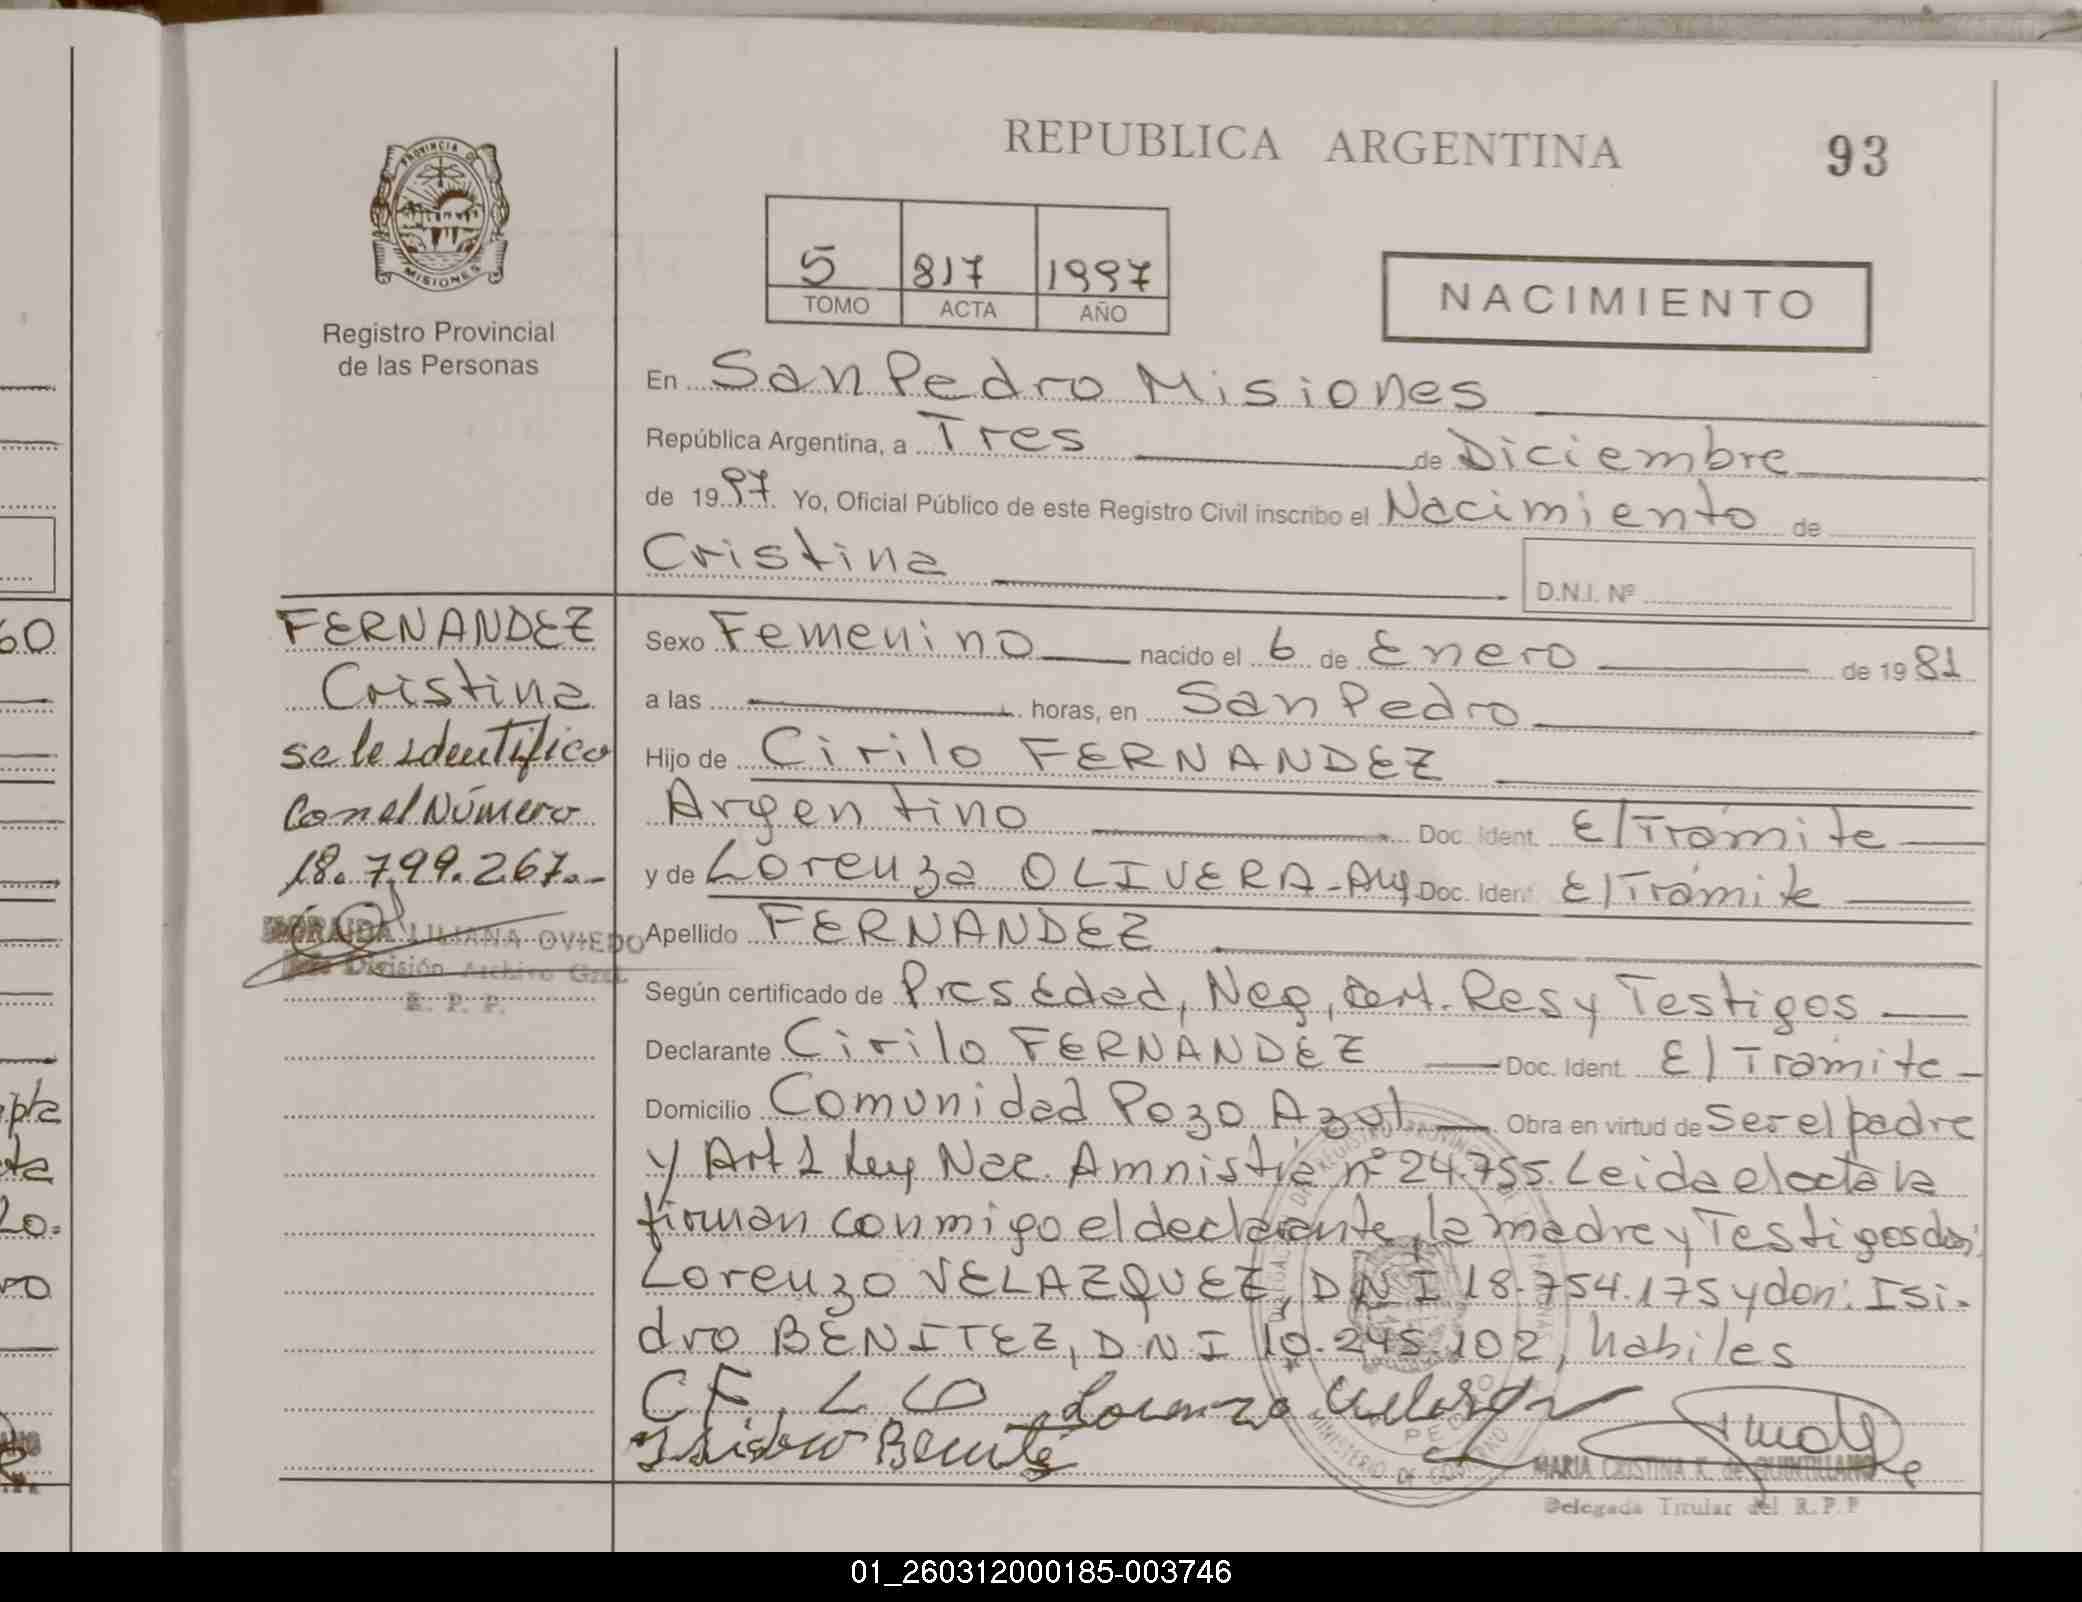 REPUBLICA ARGENTINA
93
PROVINCIA DE
MISIONES
Registro Provincial
de las Personas
5 817 1997
TOMO ACTA AÑO
NACIMIENTO
En San Pedro Misiones
República Argentina, a Tres de Diciembre
de 1997 Yo, Oficial Público de este Registro Civil inscribo el Nacimiento de
Cristina
D.N.I. Nº
FERNANDEZ
Cristina
se le identifico
con el Número
18.799.267.-
LILIANA OVIEDO
División Archivo Gral.
R. P. P.
Sexo Femenino nacido el 6 de Enero de 1981
a las horas, en San Pedro
Hijo de Cirilo FERNANDEZ
Argentino Doc. Ident. E/Trámite
y de Lorenza OLIVERA-Arg Doc. Ident E/Trámite
Apellido FERNANDEZ
Según certificado de Pres Edad, Neg, Cert. Res y Testigos
Declarante Cirilo FERNANDEZ Doc. Ident. E/Tramite
Domicilio Comunidad Pozo Azul Obra en virtud de Ser el padre
y Art 1 Ley Nac. Amnistia nº 24.755. Leida el acta la
firman conmigo el declarante, la madre y Testigos don:
Lorenzo VELAZQUEZ, DNI 18.754.175 y don: Isi-
dro BENITEZ, DNI 10.245.102, habiles
CF. L O Lorenzo Velasquez
Isidro Benite
MARIA CRISTINA K. de QUINTILLANO
Delegada Titular del R.P.P
60
pta
ta
Lo.
ro
01_260312000185-003746